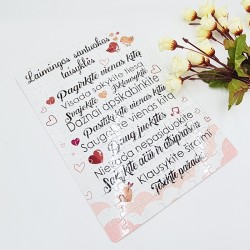 Laimingos santuokos
taisyklės
Pagirkite vienas kitą
Visada sakykite tiesą
Svajokite
Dažnai apsikabinkite
Pasitikėkite vienas kitu
Saugokite vienas kitą
Daug juokitės
Niekada nepasiduokite
Sakykite ačiū ir atsiprašau
Klausykite širdimi
Tęskite pažadus